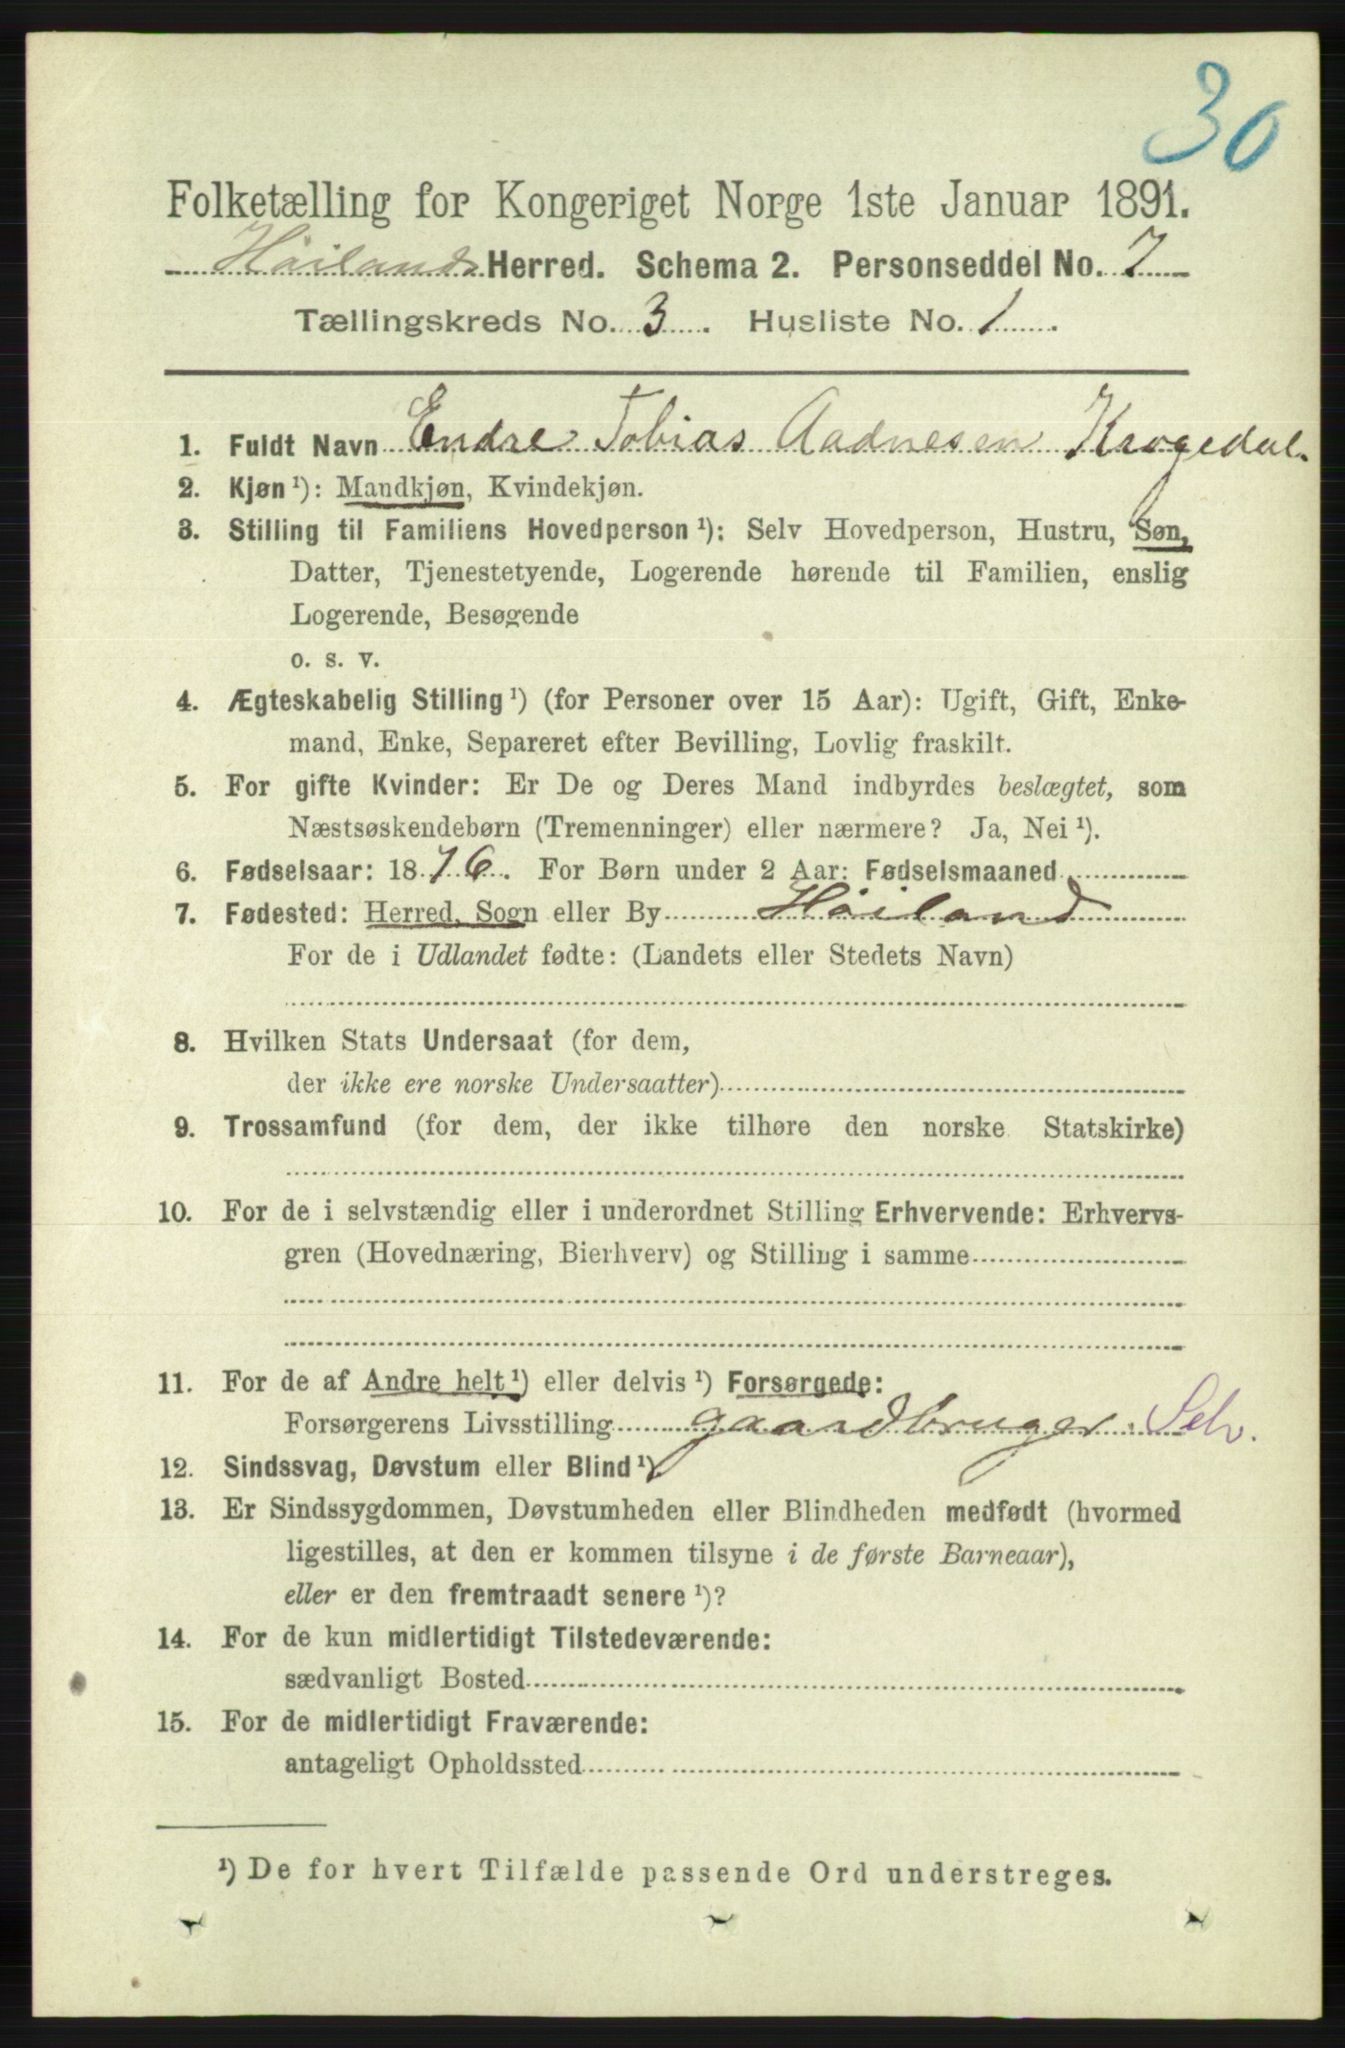 30
Folketælling for Kongeriget Norge 1ste Januar 1891.
Höiland Herred. Schema 2. Personseddel No. 7
Tællingskreds No. 3. Husliste No. 1.
1. Fuldt Navn Endre Tobias Aadnesen Krogedal.
2. Kjøn ¹): Mandkjøn, Kvindekjøn.
3. Stilling til Familiens Hovedperson ¹): Selv Hovedperson, Hustru, Søn,
Datter, Tjenestetyende, Logerende hørende til Familien, enslig
Logerende, Besøgende
o. s. v.
4. Ægteskabelig Stilling ¹) (for Personer over 15 Aar): Ugift, Gift, Enke-
mand, Enke, Separeret efter Bevilling, Lovlig fraskilt.
5. For gifte Kvinder: Er De og Deres Mand indbyrdes beslægtet, som
Næstsøskendebørn (Tremenninger) eller nærmere? Ja, Nei ¹).
6. Fødselsaar: 1876. For Børn under 2 Aar: Fødselsmaaned
7. Fødested: Herred, Sogn eller By Höiland
For de i Udlandet fødte: (Landets eller Stedets Navn)
8. Hvilken Stats Undersaat (for dem,
der ikke ere norske Undersaatter)
9. Trossamfund (for dem, der ikke tilhøre den norske Statskirke)
10. For de i selvstændig eller i underordnet Stilling Erhvervende: Erhvervs-
gren (Hovednæring, Bierhverv) og Stilling i samme
11. For de af Andre helt ¹) eller delvis ¹) Forsørgede:
Forsørgerens Livsstilling gaardbruger. Selv.
12. Sindssvag, Døvstum eller Blind ¹).
13. Er Sindssygdommen, Døvstumheden eller Blindheden medfødt (hvormed
ligestilles, at den er kommen tilsyne i de første Barneaar),
eller er den fremtraadt senere ¹)?
14. For de kun midlertidigt Tilstedeværende:
sædvanligt Bosted
15. For de midlertidigt Fraværende:
antageligt Opholdssted
¹) De for hvert Tilfælde passende Ord understreges.